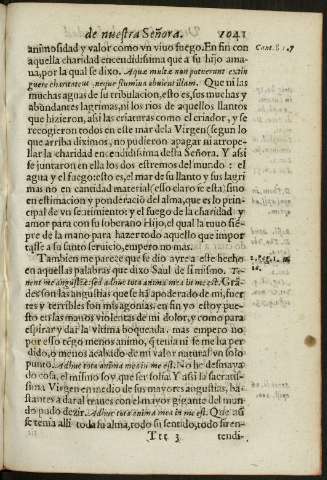 de nuestra Señora. 1041
animosidad y valor como vn viuo fuego. En fin con
aquella charidad encendidissima que a su hijo ama-
ua, por la qual se dixo. Aqua multæ non potuerunt extin
guere charitatem, neque flumina obruent illam. Que ni las
muchas aguas de su tribulacion, esto es, sus muchas y
abundantes lagrimas, ni los rios de aquellos llantos
que hizieron, assi las criaturas como el criador, y se
recogieron todos en este mar de la Virgen (segun lo
que arriba diximos, no pudieron apagar ni atrope-
llar la charidad encendidissima desta Señora. Y assi
se juntaron en ella los dos estremos del mundo: el
agua y el fuego: esto es, el mar de su llanto y sus lagri
mas no en cantidad material (esso claro se esta) sino
en estimacion y ponderaciō del alma, que es lo prin-
cipal de vn sentimiento: y el fuego de la charidad y
amor para con su soberano Hijo, el qual la tuuo siē-
pre de la mano para hazer todo aquello que impor
tasse a su santo seruicio, empero no mas.
Tambien me parece que se dio ayre a este hecho
en aquellas palabras que dixo Saul de si mismo. Te-
nent me angustiæ: sed adhuc tota anima mea in me est. Grā-
des son las angustias que se hā apoderado de mi, fuer
tes y terribles son mis agonias. en fin yo estoy pues-
to en las manos violentas de mi dolor, y como para
espirar y dar la vltima boqueada. mas empero no
por esso tēgo menos animo, q̄ tenia ni se me ha per
dido, o menos acabado de mi valor natural vn solo
punto. Adhuc tota anima mea in me est. No he desmaya
do cosa, el mismo soy que ser solia. Y assi la sacratis-
sima Virgen en medio de sus mayores angustias, bas-
tantes a dar al traues con el mayor gigante del mun-
do pudo dezir. Adhuc tota anima mea in me est. Que assi
se tenia alli toda su alma, todo su sentido, todo su en-
Ttt 3 tendi-
Cant. 8. 7
2. Reg. 1.